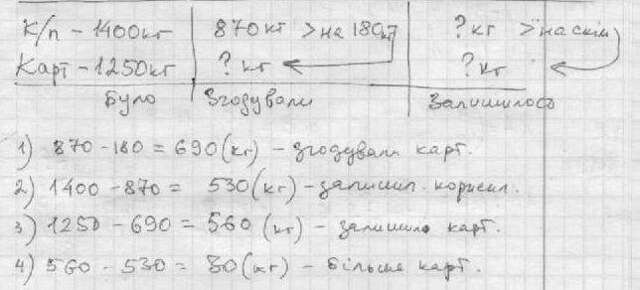 К/п - 1400кг | 870 кг > на 180кг | ? кг > на скільки
Карт - 1250кг | ? кг | ? кг
Було | Згодували | Залишилось
1) 870 - 180 = 690 (кг) - згодували карт.
2) 1400 - 870 = 530 (кг) - залишил. кормил.
3) 1250 - 690 = 560 (кг) - залишило карт.
4) 560 - 530 = 30 (кг) - більше карт.